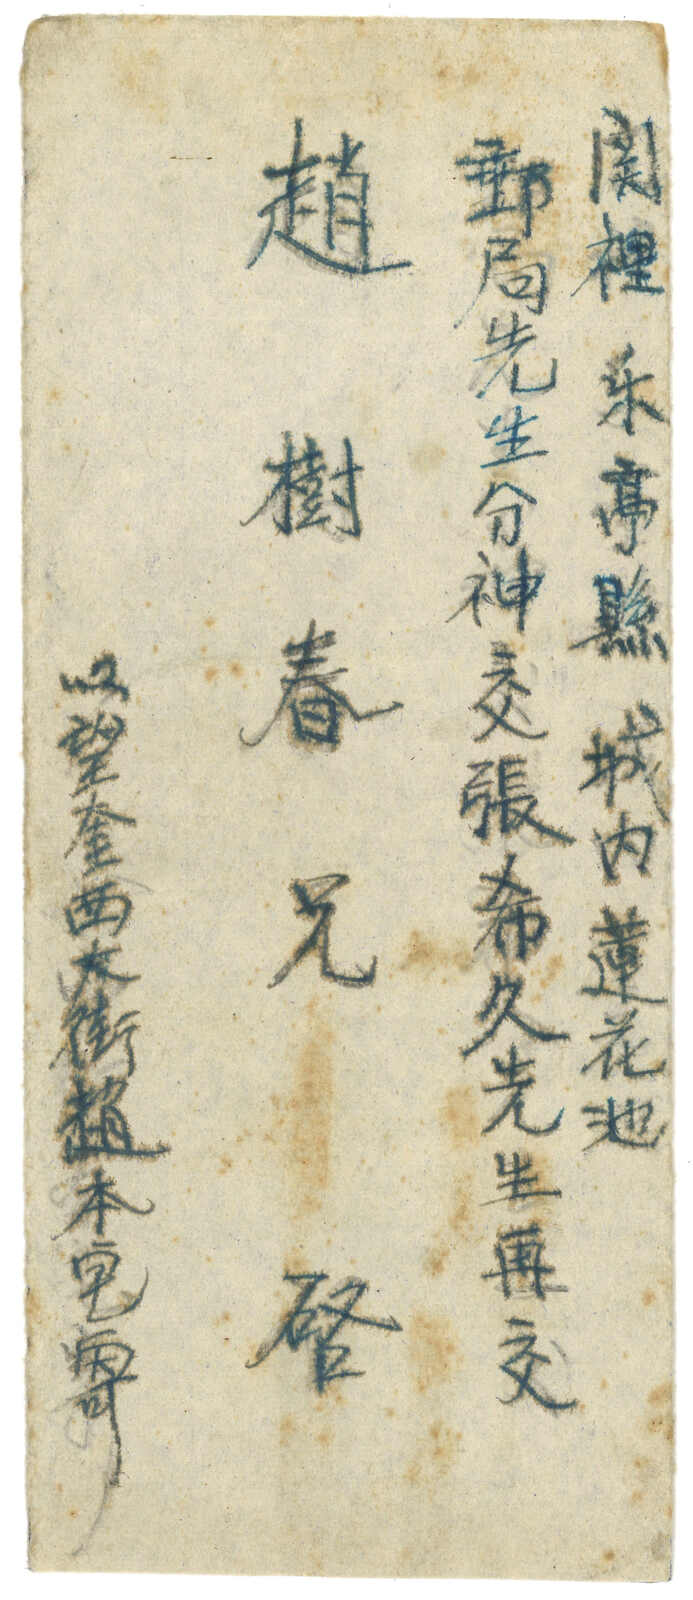 関裡乐亭縣城内蓮花池
郵局先生分神交張希久先生再交
趙樹春兄啓
以望奎西大街趙本宅寄